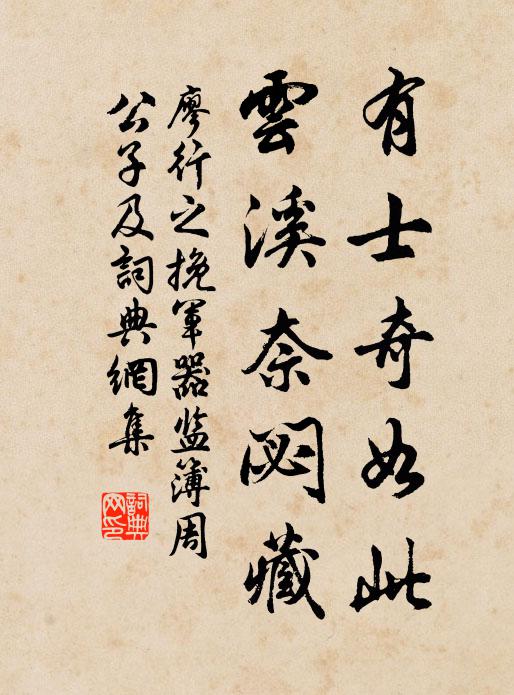 有士奇如此
雲溪奈閟藏
廖行之挽軍器監簿周
公子及詞典網集
詞典网印